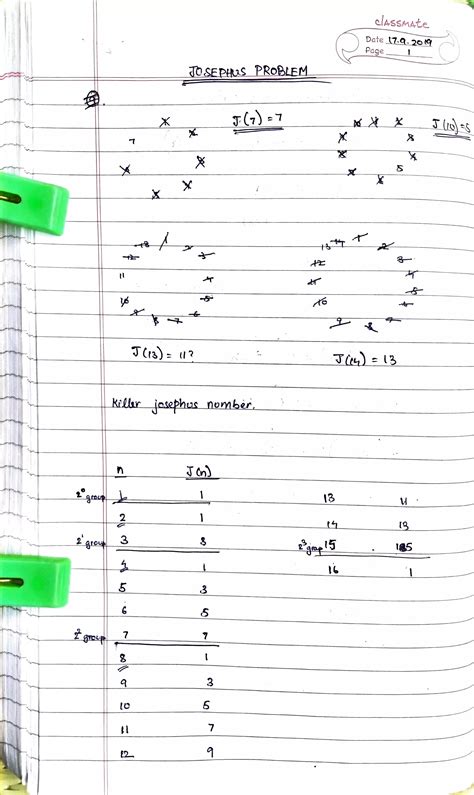 classmate
Date 17.9.2019
Page 1
JOSEPHUS PROBLEM
J(7) = 7
J(10) = 5
7
5
13 1 2
12 3
11 4
10 5
9 8 7 6
13 14 1 2
12 3
11 4
5
10 6
9 8 7
J(13) = 11?
J(14) = 13
Killer josephus number.
n J(n)
2⁰ group 1 1 13 11
2 1 14 13
2¹ group 3 3 2³ group 15 15
4 1 16 1
5 3
6 5
2² group 7 7
8 1
9 3
10 5
11 7
12 9